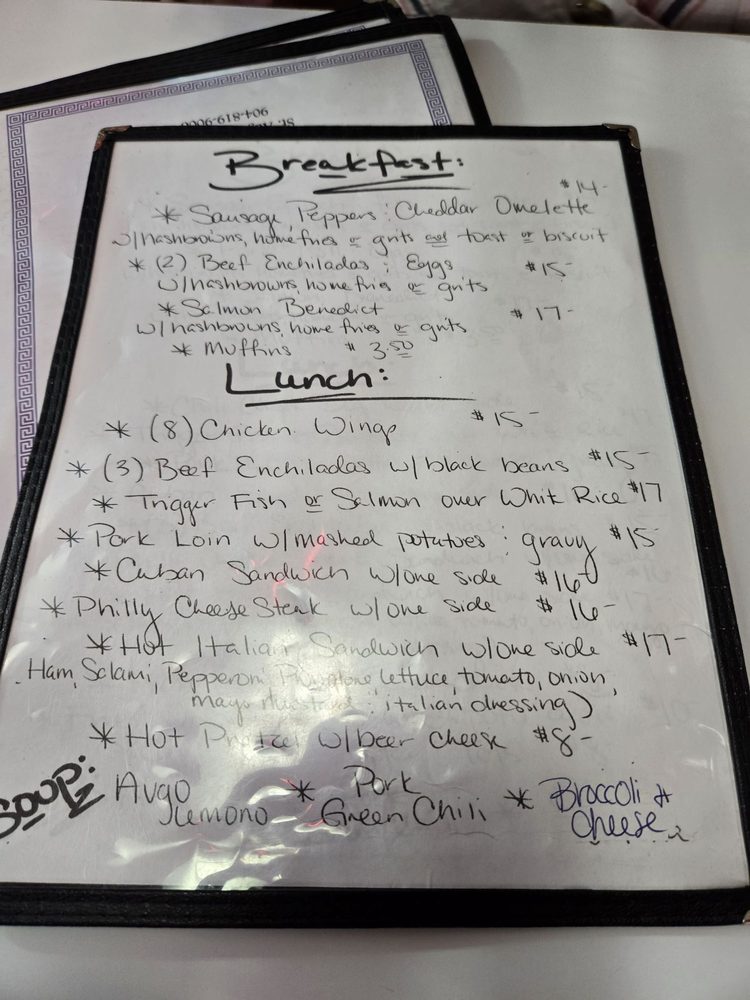 904-819-9006
Breakfast:
* Sausage, Peppers : Cheddar Omelette $14-
w/hashbrowns, home fries or grits and toast or biscuit
* (2) Beef Enchiladas : Eggs $15-
w/hashbrowns, home fries or grits
* Salmon Benedict $17-
w/hashbrowns, home fries or grits
* Muffins $3.50
Lunch:
* (8) Chicken Wings $15-
* (3) Beef Enchiladas w/black beans $15-
* Trigger Fish or Salmon over Whit Rice $17
* Pork Loin w/mashed potatoes : gravy $15
* Cuban Sandwich w/one side $16
* Philly Cheese Steak w/one side $16-
* Hot Italian Sandwich w/one side $17-
Ham, Salami, Pepperoni, Provolone lettuce, tomato, onion,
mayo mustard : italian dressing)
* Hot Pretzel w/beer cheese $8-
Soup: Avgo lemono * Pork Green Chili * Broccoli & cheese